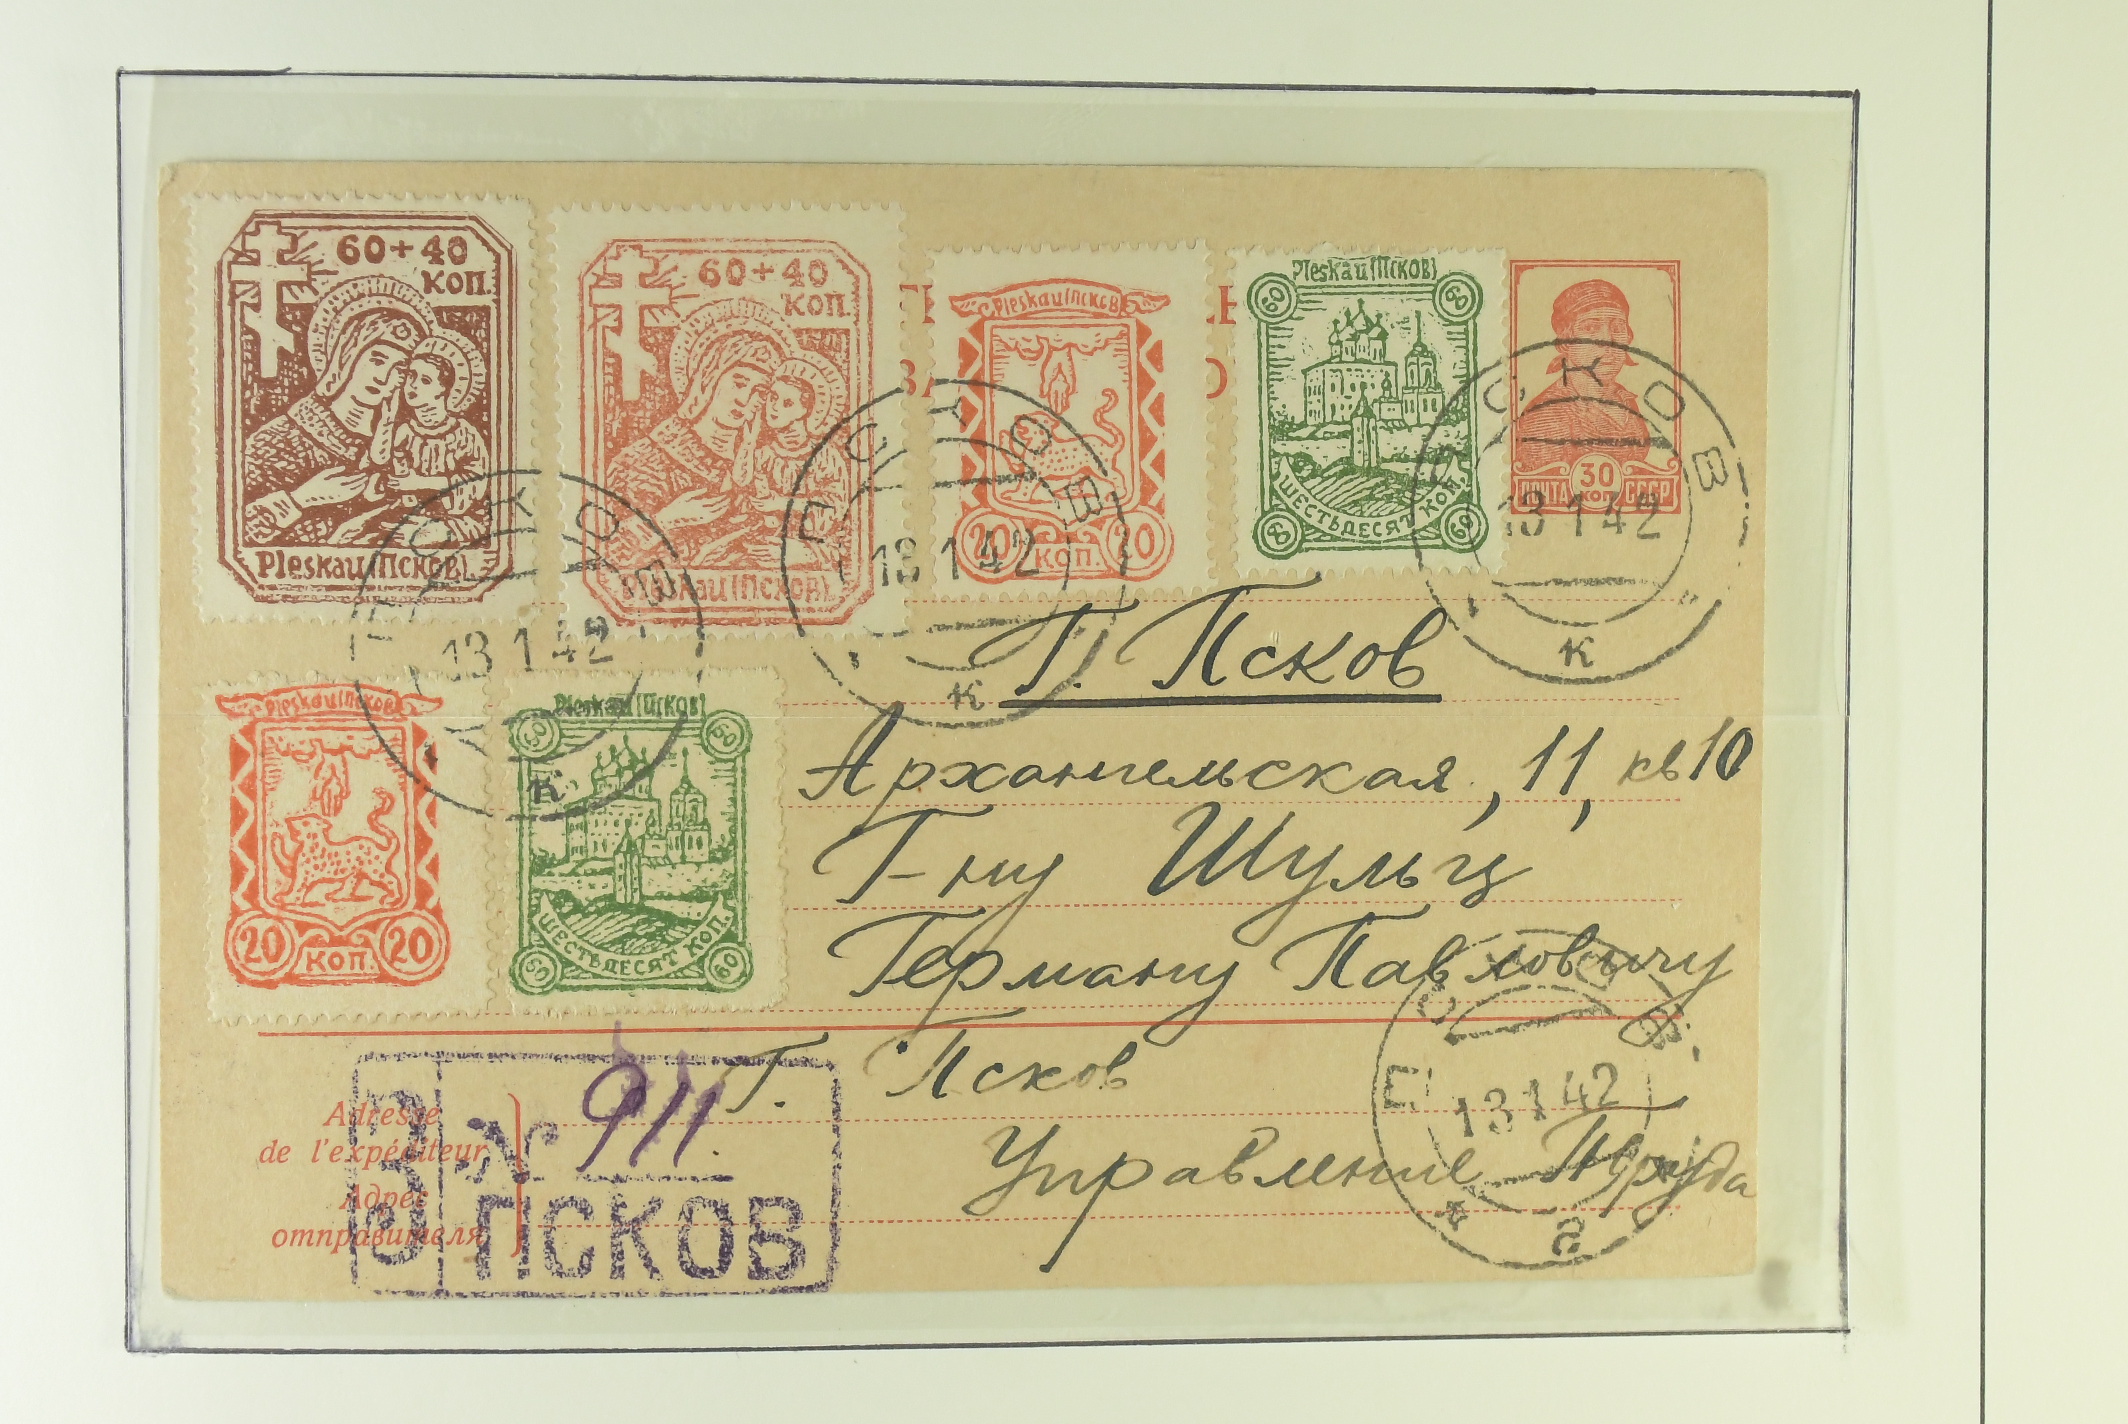 60+40
КОП.
Pleskau(Псков).
60+40
КОП.
Pleskau(Псков).
Pleskau(Псков)
20 КОП. 20
Pleskau(Псков)
60 60
ШЕСТЬДЕСЯТ КОП.
60 60
30
ПОЧТА КОП СССР
ПСКОВ
13 1 42
к
ПСКОВ
13 1 42
к
ПСКОВ
13 1 42
к
Pleskau(Псков)
20 КОП. 20
Pleskau(Псков)
60 60
ШЕСТЬДЕСЯТ КОП.
60 60
Г. Псков
Архангельская, 11, кв 10
Г-ну Шульц
Герману Павловичу
Г. Псков
Управление Труда
Adresse
de l'expéditeur
Адрес
отправителя
З
№ 911.
ПСКОВ
13 1 42